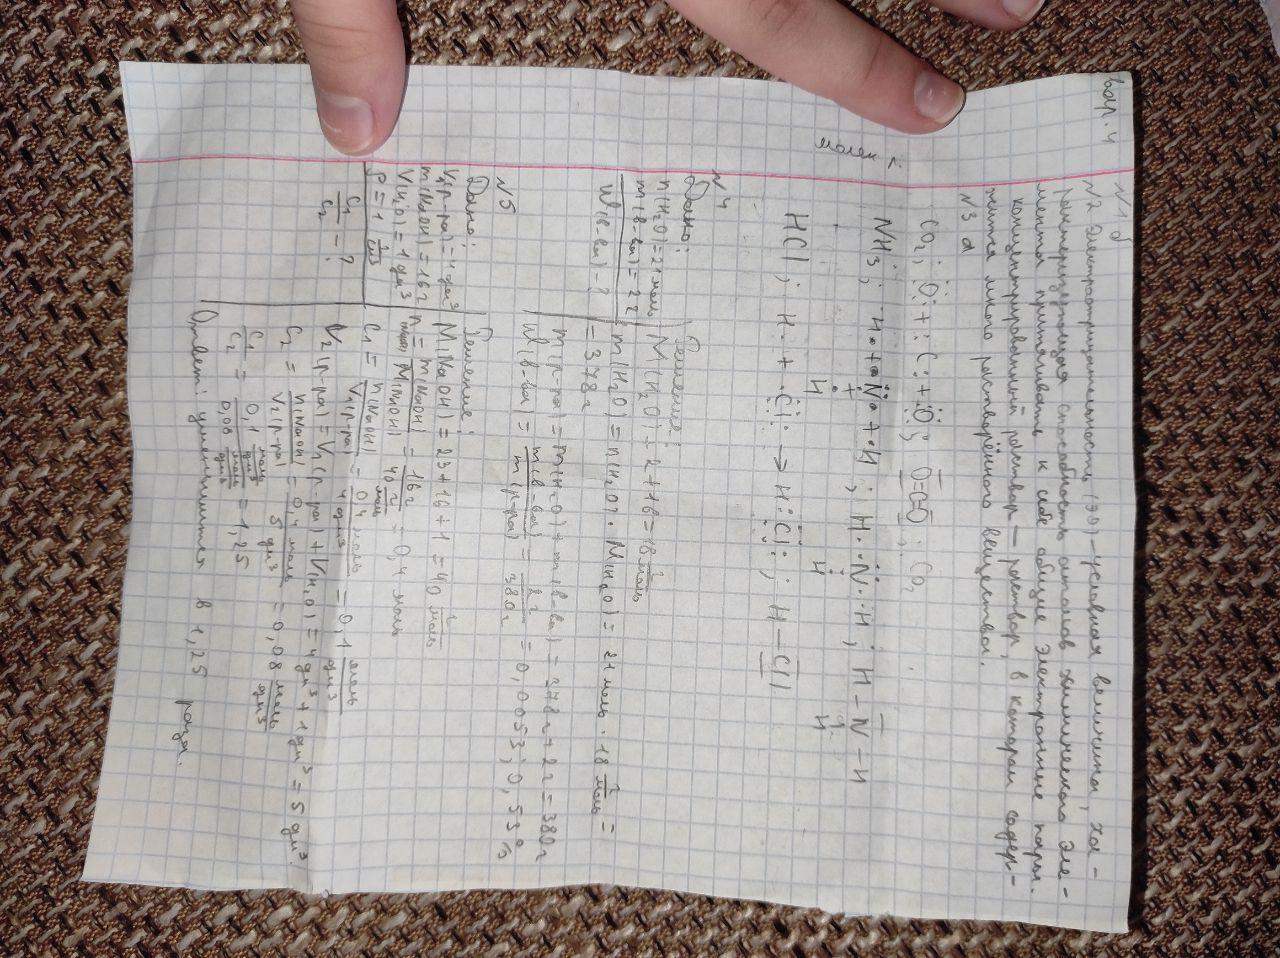 Вар. 4
№1 б
№2 Электроотрицательность (ЭО) – условная величина, ха-
рактеризующая способность атомов химического эле-
мента притягивать к себе общие электронные пары.
Концентрированный раствор – раствор, в котором содер-
жится много растворённого вещества.
№3 а
CO₂; :Ö: + :C: + :Ö:; O=C=O; CO₂
NH₃; H• + •N• + •H; H:N:H; H–N–H
+
H H H
HCl; H· + ·Cl: → H:Cl:; H–Cl
№4
Дано:
n(H₂O) = 21 моль
m(в-ва) = 2 г
W(в-ва) - ?
Решение:
M(H₂O) = 2 + 16 = 18 г/моль
m(H₂O) = n(H₂O) · M(H₂O) = 21 моль · 18 г/моль =
= 378 г
m(р-ра) = m(H₂O) + m(в-ва) = 378 г + 2 г = 380 г
W(в-ва) = m(в-ва)/m(р-ра) = 2 г/380 г = 0,0053; 0,53%
№5
Дано:
V₁(р-ра) = 4 дм³
m(NaOH) = 16 г
V(H₂O) = 1 дм³
ρ = 1
C₁/C₂ - ?
Решение:
M(NaOH) = 23 + 16 + 1 = 40 г/моль
n = m(NaOH)/M(NaOH) = 16 г/40 г/моль = 0,4 моль
C₁ = n(NaOH)/V₁(р-ра) = 0,4 моль/4 дм³ = 0,1 моль/дм³
V₂(р-ра) = V₁(р-ра) + V(H₂O) = 4 дм³ + 1 дм³ = 5 дм³.
C₂ = n(NaOH)/V₂(р-ра) = 0,4 моль/5 дм³ = 0,08 моль/дм³
C₁/C₂ = 0,1 моль/дм³/0,08 моль/дм³ = 1,25
Ответ: уменьшится в 1,25 раза.